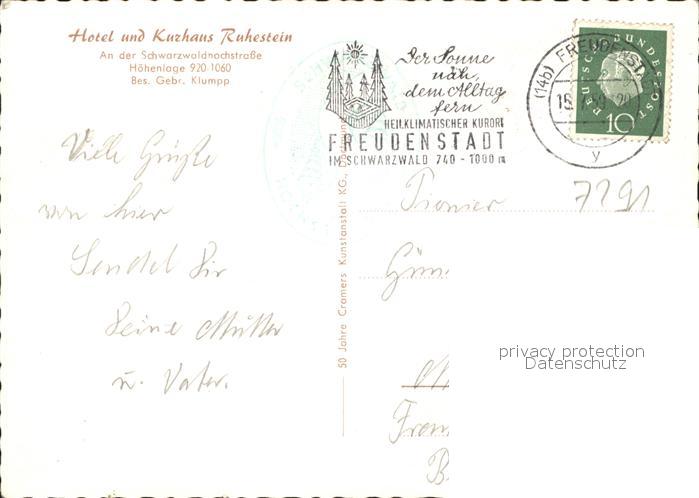 Hotel und Kurhaus Ruhestein
An der Schwarzwaldhochstraße
Höhenlage 920-1060
Bes. Gebr. Klumpp
Der Sonne
näh,
dem Alltag
fern
HEILKLIMATISCHER KURORT
FREUDENSTADT
IM SCHWARZWALD 740 - 1000 m
(14b) FREUDENST
y
DEUTSCHE BUNDESPOST
10
Viele Grüße
von hier
Sendet Dir
Deine Mutter
u. Vater.
50 Jahre Cramers Kunstanstalt KG., Dortmund
Pionier
7291
privacy protection
Datenschutz